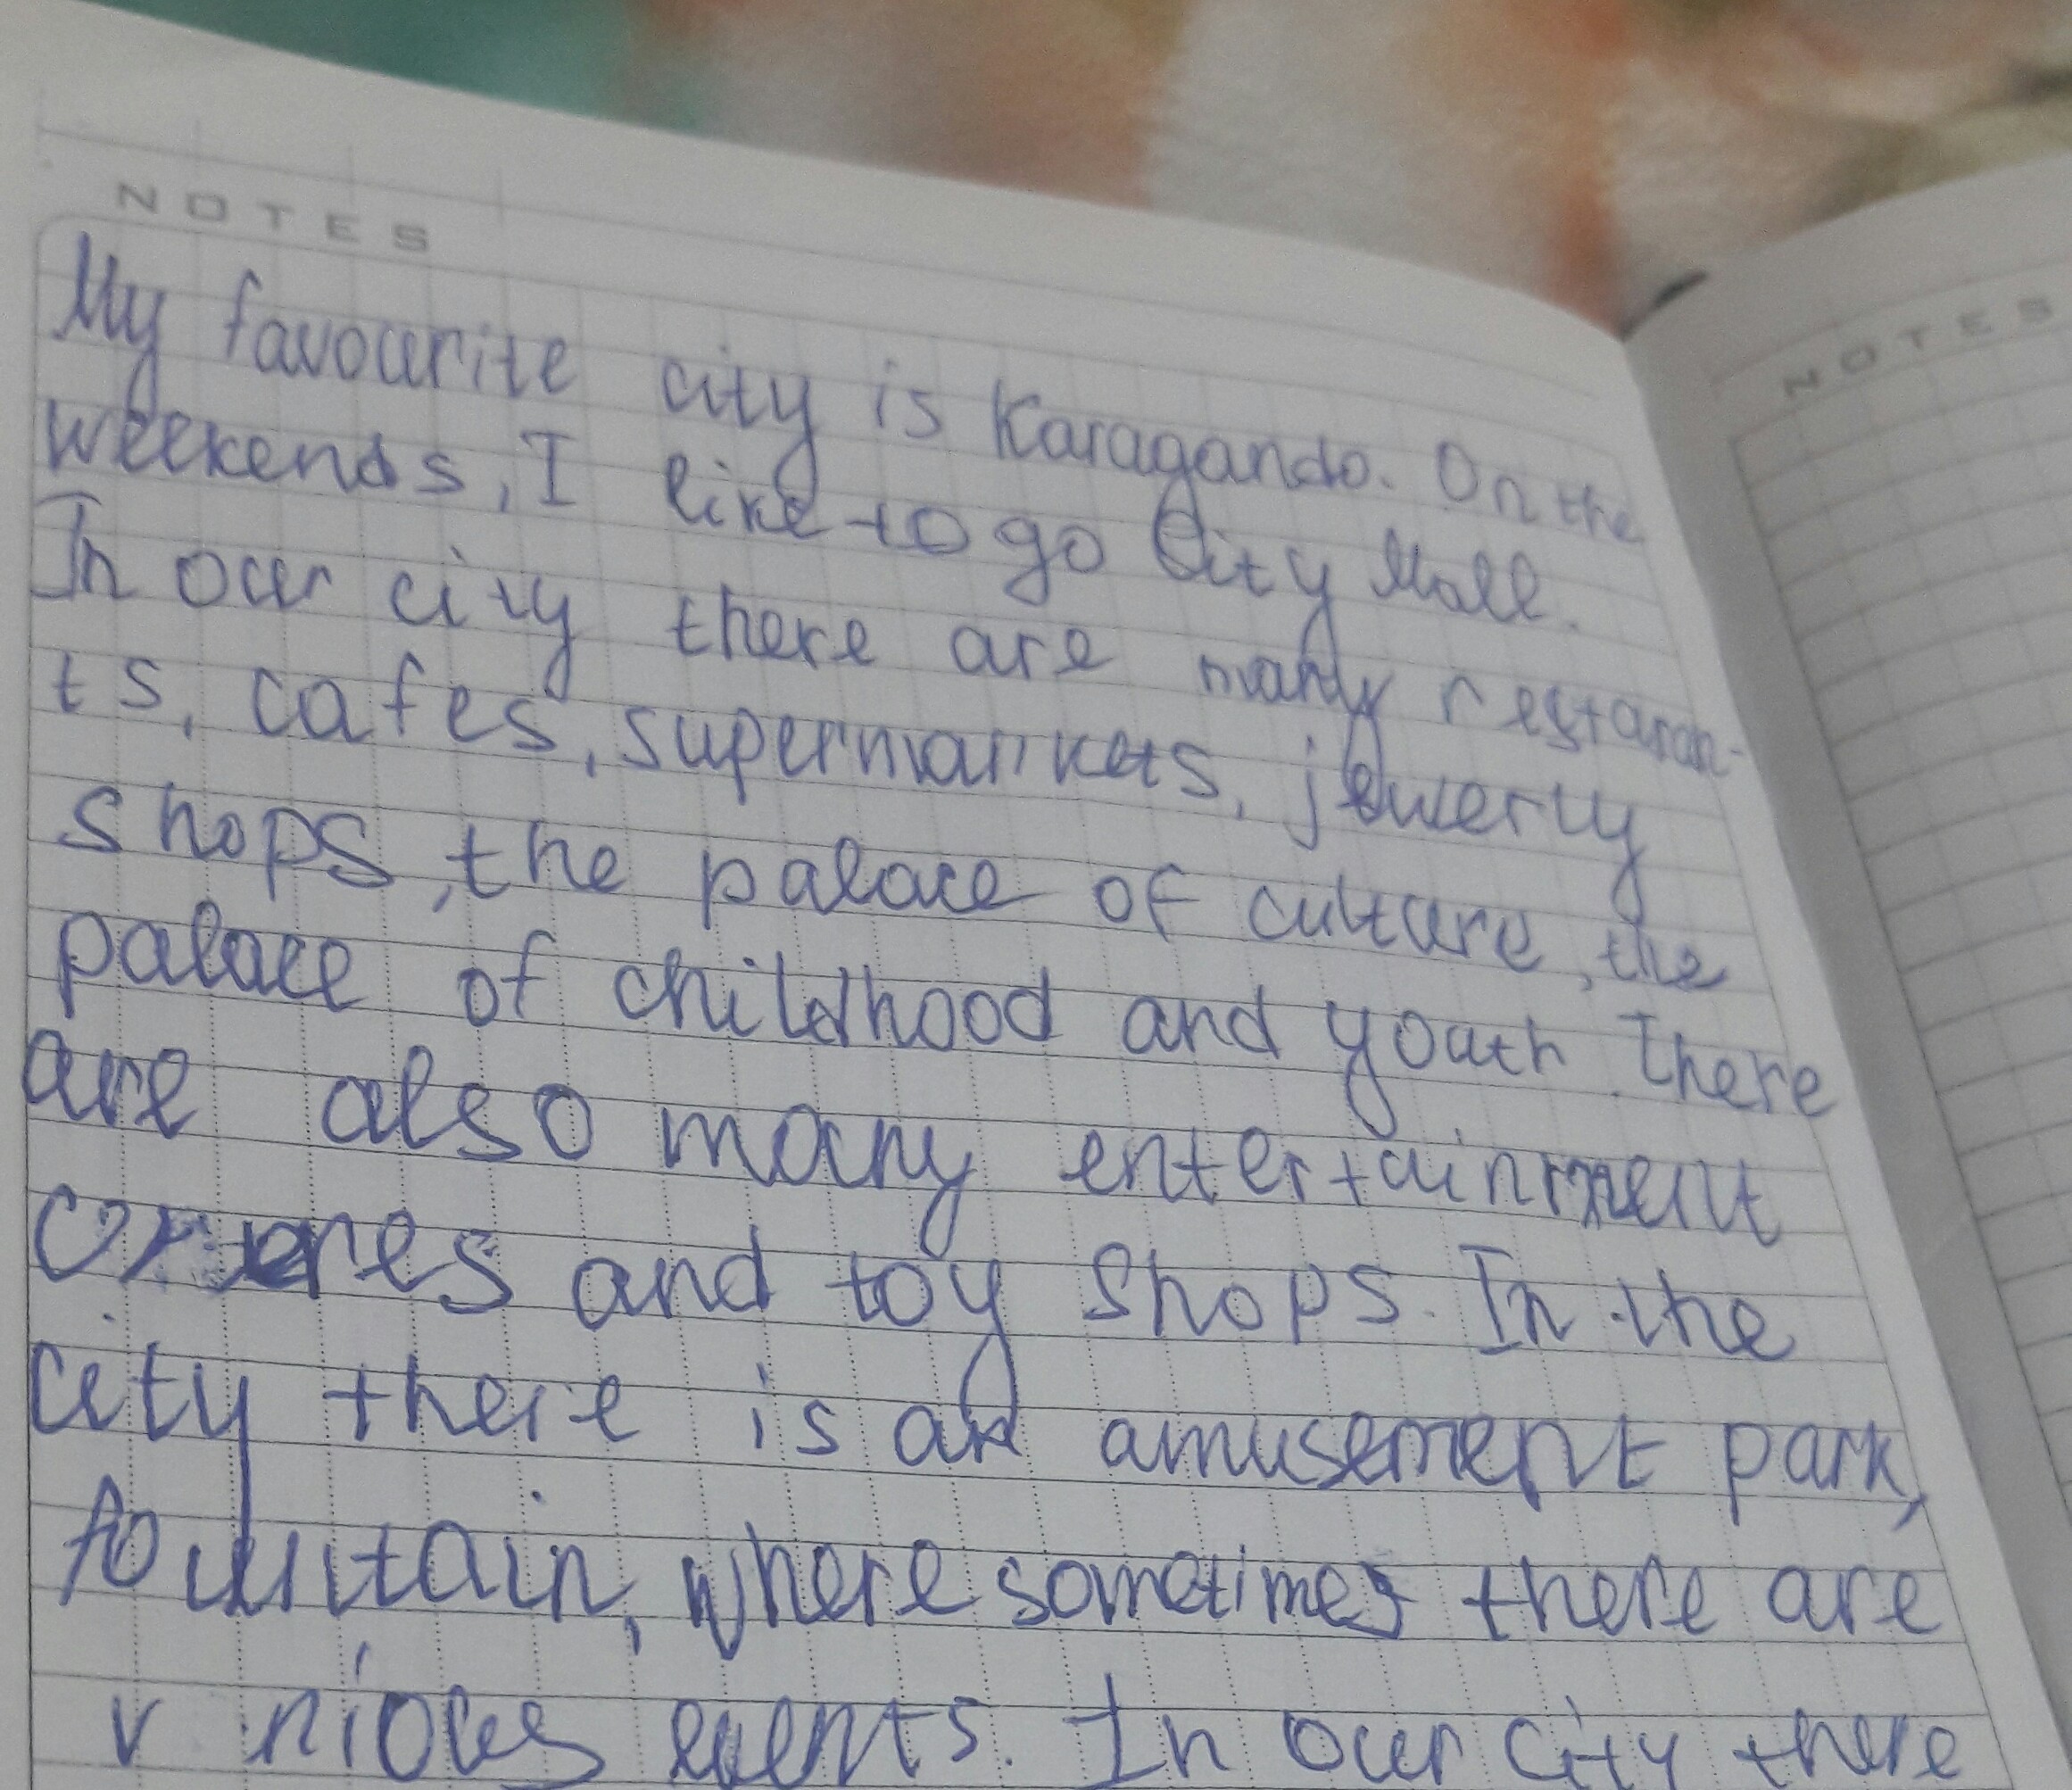 NOTES
My favourite city is Karaganda. On the
weekends, I like to go City Mall.
In our city there are many restaran-
ts, cafes, supermarkets, jewerly
shops, the palace of culture, the
palace of childhood and youth. There
are also many entertainment
and toy shops. In the
city there is an amusement park,
fountain, where sometimes there are
events. In our city there
NOTES